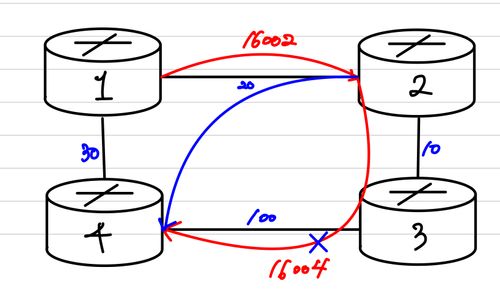 16002
1
20
2
30
10
4
100
3
16004